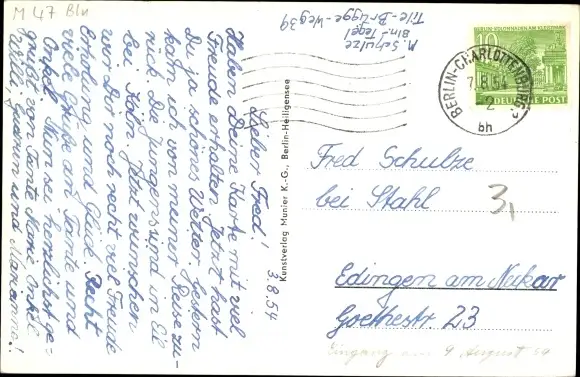 M 47 Bln
M. Schulze
Bln. Tegel
Tile-Brügge-Weg 39
3.8.54
Lieber Fred!
Haben Deine Karte mit viel
Freude erhalten. Jetzt hast
Du ja schönes Wetter. Gestern
kam ich von meiner Reise zu-
rück. Die Jungens sind in
bei Köln. Jetzt wünschen
wir Dir noch recht viel Freude
Erholung und Glück. Recht
viele Grüße an Tante und
Onkel. Nun sei herzlichst ge-
grüßt von Tante Marie Onkel
Willi, und Marianne!
Kunstverlag Munier K.-G., Berlin-Heiligensee
10
DEUTSCHE POST
BERLIN-CHARLOTTENBURG 2
7.8.54
bh
Fred Schulze
bei Stahl
3,
Edingen am Neckar
Goethestr. 23
Eingang am 9 August 54